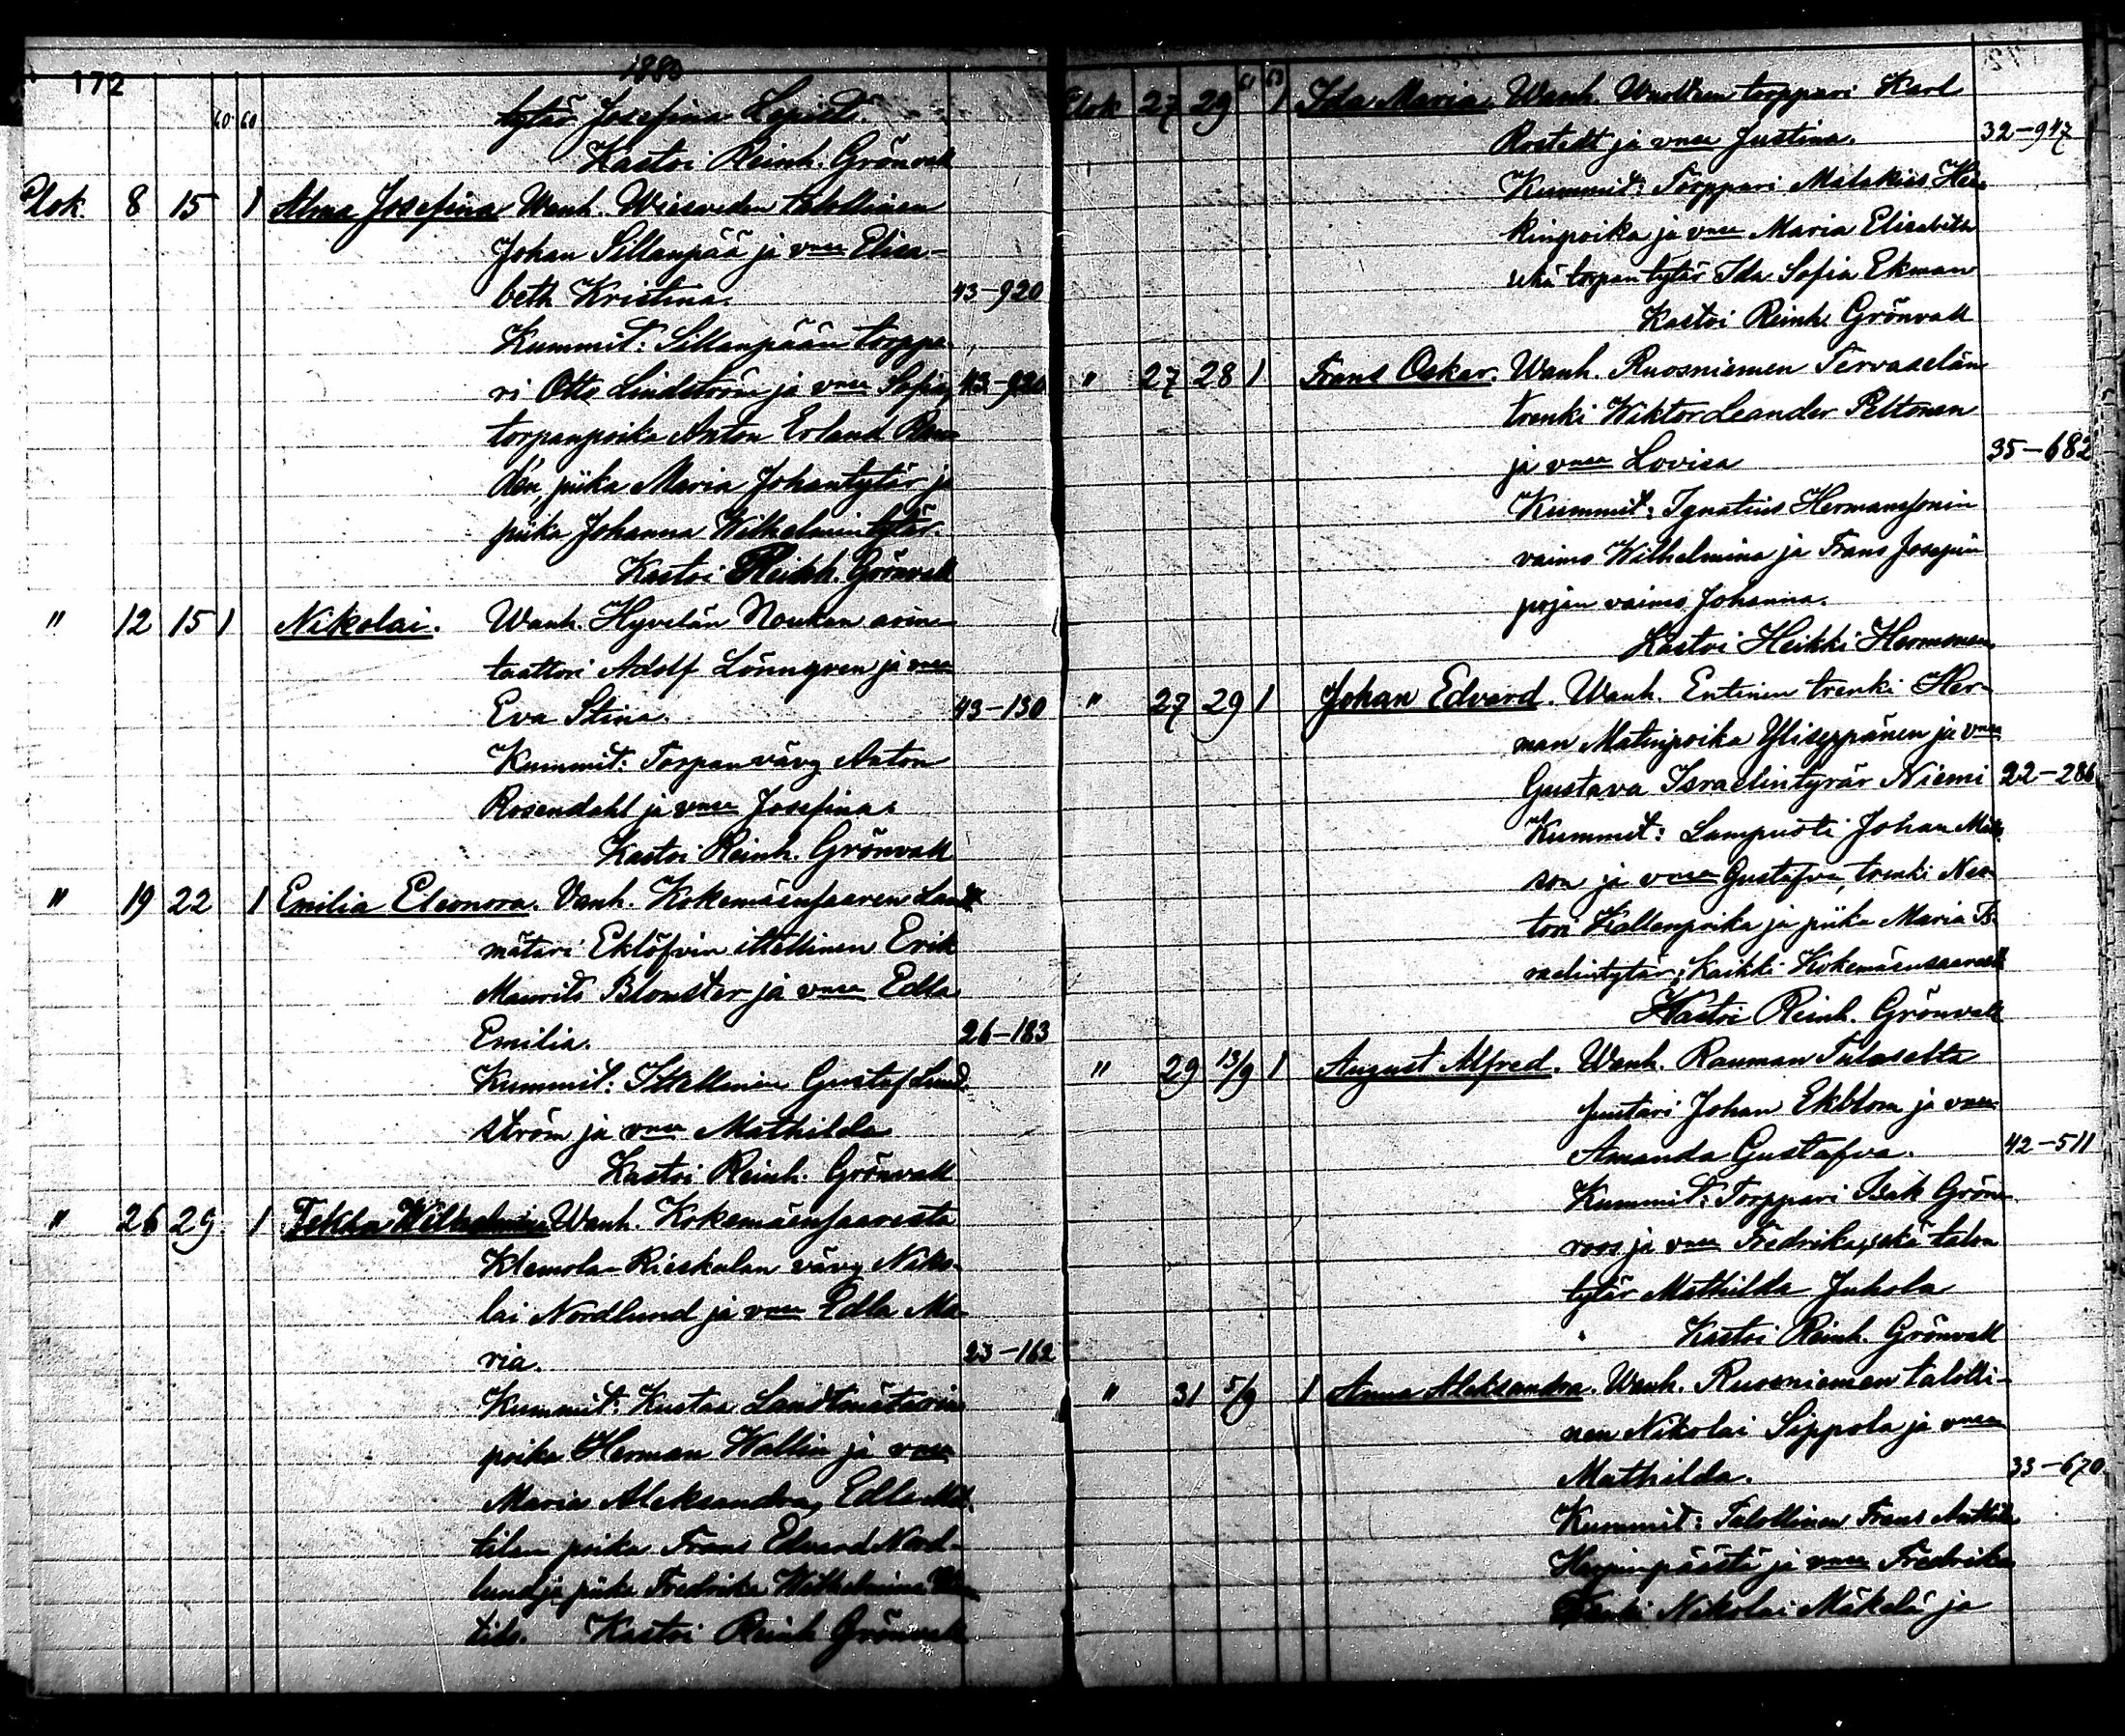 172
1880
60 60
tytär Josefina
Kastoi Reinh. Grönvall
Elok. 8 15 1 Alma Josefina Wanh. Wiasveden talollinen
Johan Sillanpää ja vmsa Elisa-
beth Kristina. 43-920
Kummit: Sillanpään torppa-
ri Otto Lindström ja vmsa Sofia, 43-920
torpanpoika Anton Erland
dén, piika Maria Johantytär ja
piika Johanna Wilhelmintytär.
Kastoi Reinh. Grönvall
" 12 15 1 Nikolai. Wanh. Hyvelän Noukan
taattori Adolf Lönngren ja vmsa
Eva Stina. 43-130
Kummit: Torpanvävy Anton
Rosendahl ja vmsa Josefina.
Kastoi Reinh. Grönvall
" 19 22 1 Emilia Eleonora. Vanh. Kokemäensaaren Landt-
mätari Eklöfvin itsellinen Erik
Maurits Blomster ja vmsa Edla
Emilia. 26-183
Kummit: Itsellinen Gustaf Lind-
ström ja vmsa Mathilda
Kastoi Reinh. Grönvall
" 26 29 1 Tekla Wilhelmina Wanh. Kokemäensaaresta
Klemola-Rieskalan vävy Niko-
lai Nordlund ja vmsa Edla Ma-
ria. 23-162
Kummit: Kustaa Landtmätarin
poika Herman Wallin ja vmsa
Maria Aleksandra, Edla
tilan poika Frans Edvard Nord-
lund ja piika Fredrika Wilhelmina
Kastoi Reinh Grönvall
61 63
Elok 27 29 1 Ida Maria. Wanh. torppari Karl
Rostedt ja vmsa Justina. 32-947
Kummit: Torppari Malakias Hei-
kinpoika ja vmsa Maria Elisabeth
sekä torpan tytär Ida Sofia Ekman
Kastoi Reinh. Grönvall
" 27 28 1 Frans Oskar. Wanh. Ruosniemen Tervaselän
trenki Wiktor Leander Peltonen
ja vmsa Lovisa 35-682
Kummit: Ignatius Hermanssonin
vaimo Wilhelmina ja Frans Josepin
pojan vaimo Johanna.
Kastoi Heikki Hermonen.
" 27 29 1 Johan Edvard. Wanh. Entinen trenki Her-
man Matinpoika Yliseppänen ja vmsa
Gustava Israelintyrär Niemi 22-286
Kummit: Lampuoti Johan Mats-
son ja vmsa Gustafva, trenki Nes-
tori Kallenpoika ja piika Maria Is-
raelintytär, Kaikki Kokemäensaaresta
Kastoi Reinh. Grönvall
" 29 13/9 1 August Alfred. Wanh. Rauman Tulaselta
puutari Johan Ekblom ja vmsa
Amanda Gustafva. 42-511
Kummit: Torppari Isak Grön-
roos ja vmsa Fredrika, sekä talon
tytär Mathilda Juhola
Kastoi Reinh. Grönvall
" 31 5/9 1 Anna Aleksandra. Wanh. Ruosniemen talolli-
nen Nikolai Sippola ja vmsa
Mathilda. 33-670
Kummit: Talollinen Frans Anttila
Harjunpäästä ja vmsa Fredrika
Trenki Nikolai Mäkelä ja